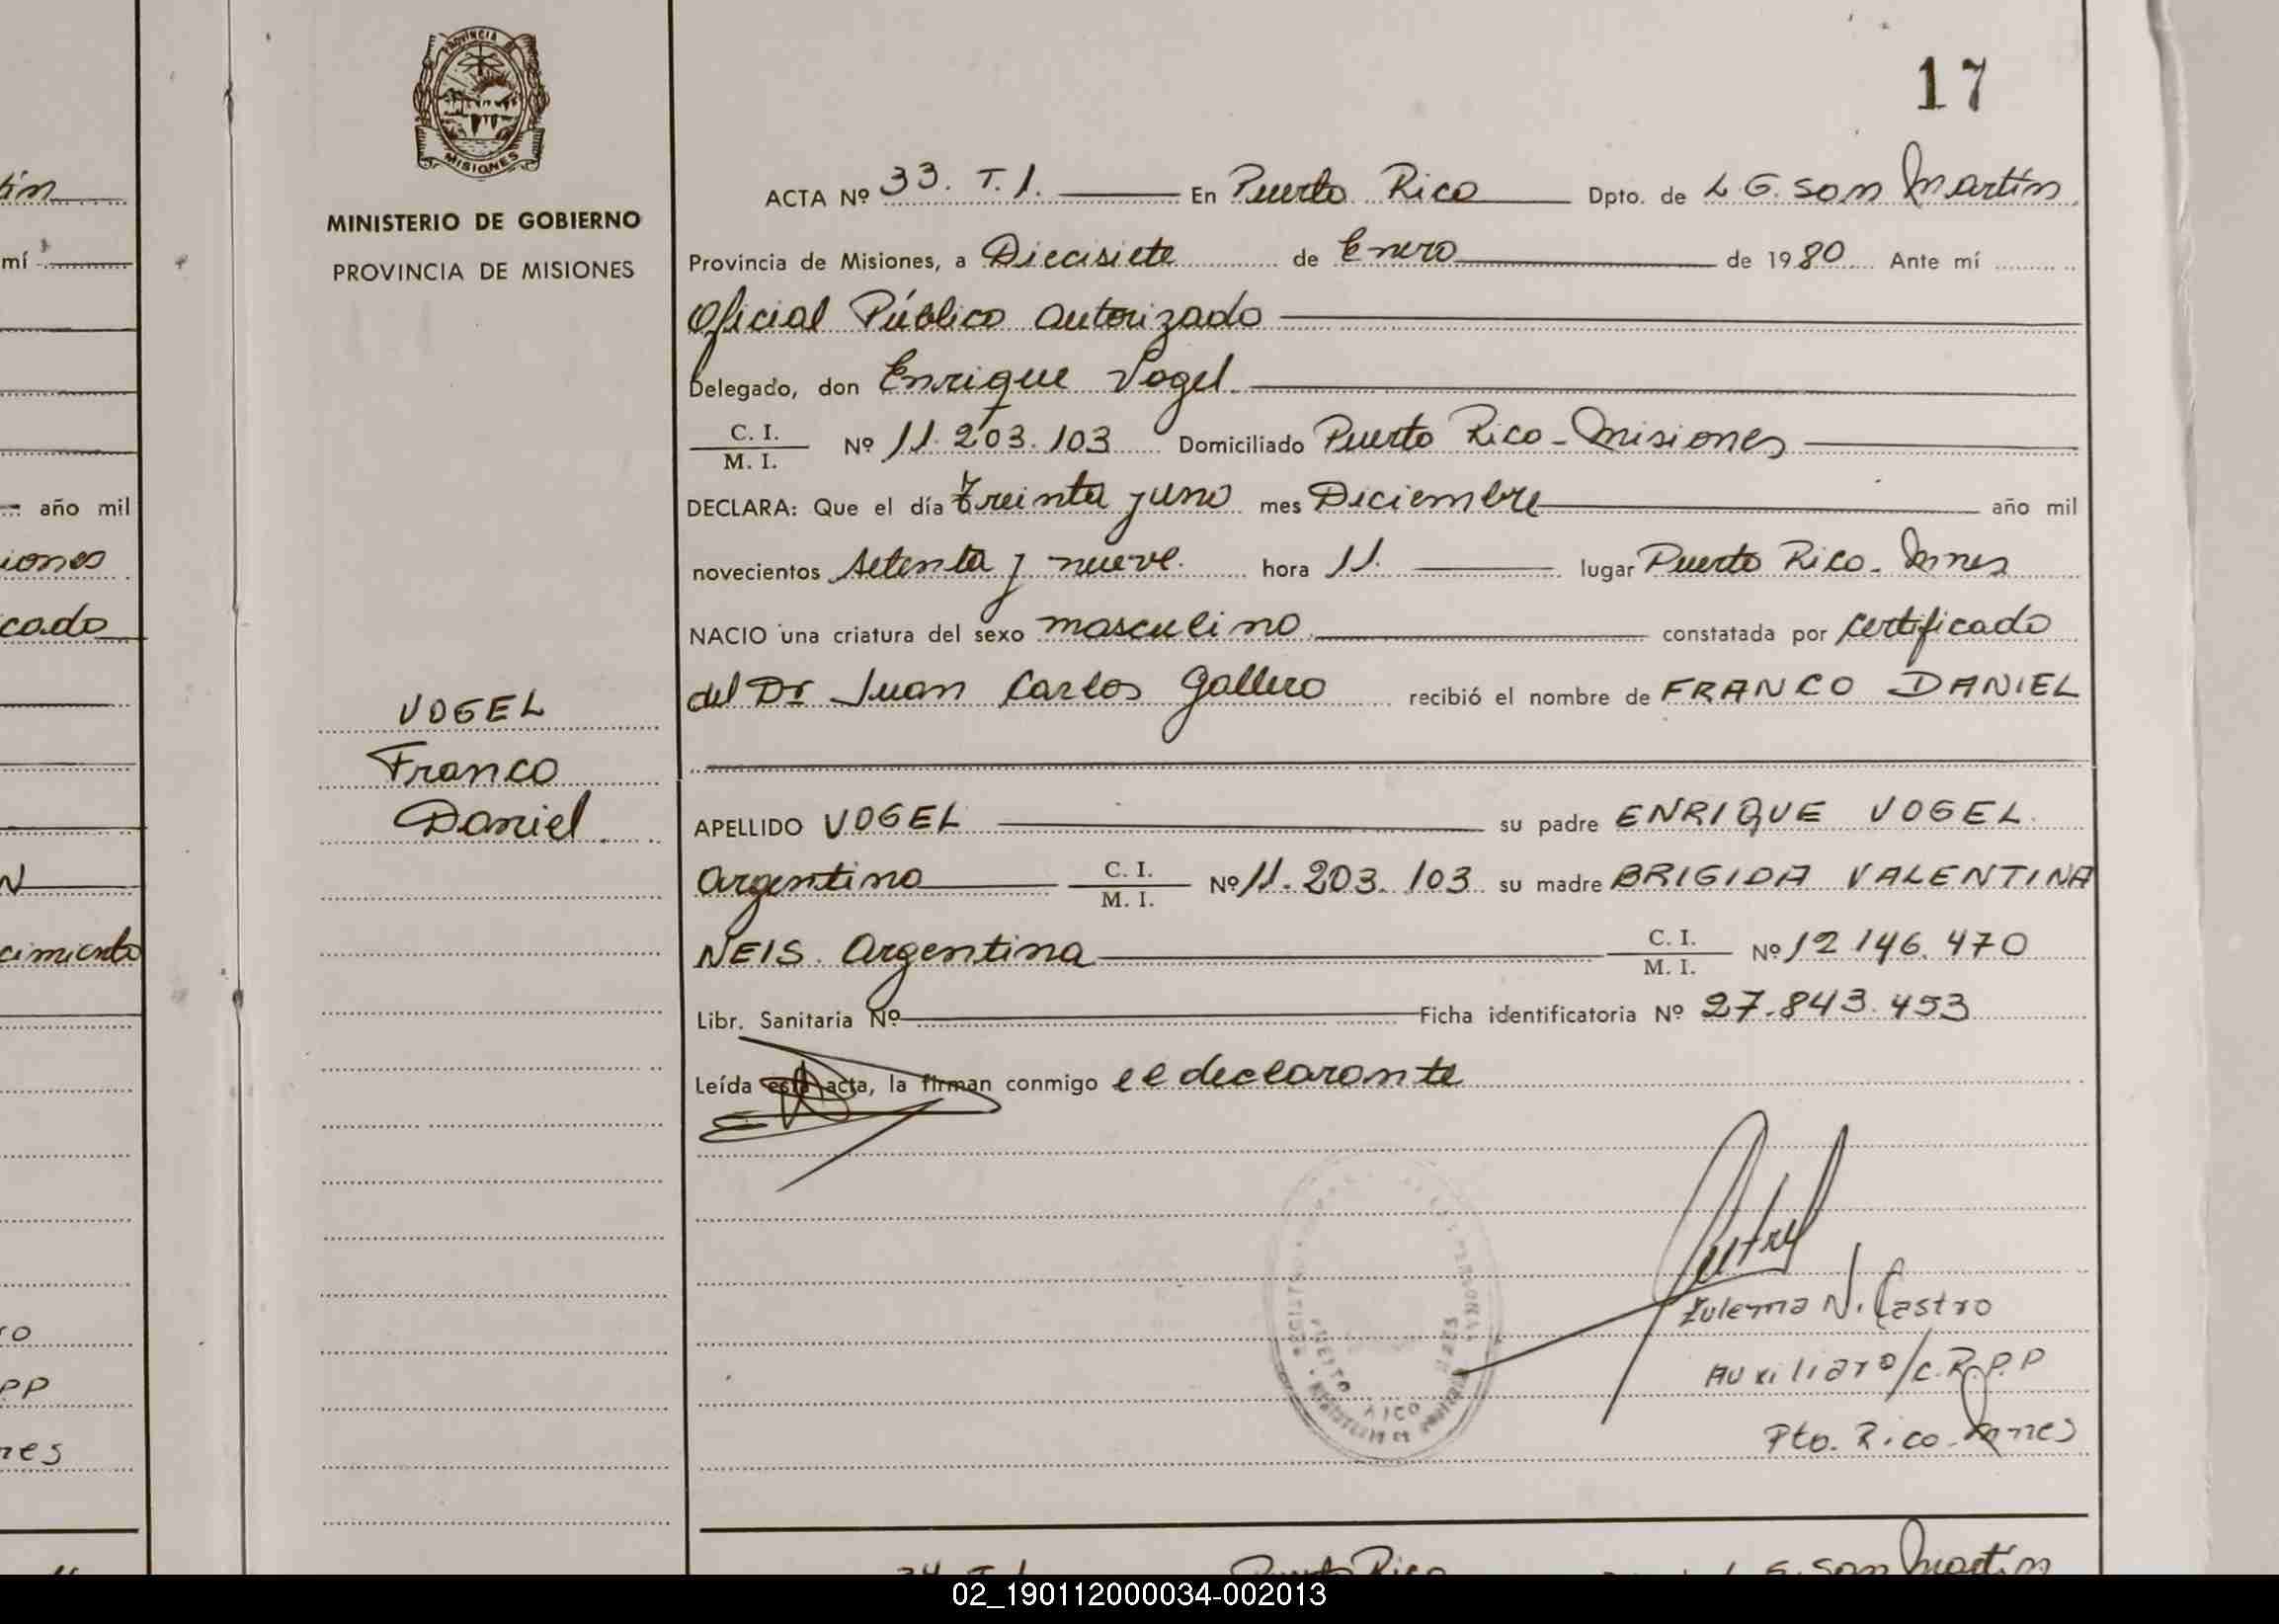 17
PROVINCIA DE
MISIONES
MINISTERIO DE GOBIERNO
PROVINCIA DE MISIONES
VOGEL
Franco
Daniel
ACTA Nº 33. T. 1. En Puerto Rico Dpto. de L. G. San Martín
Provincia de Misiones, a Diecisiete de Enero de 1980 Ante mí
Oficial Público autorizado
Delegado, don Enrique Vogel
C. I. / M. I. Nº 11.203.103 Domiciliado Puerto Rico - Misiones
DECLARA: Que el día treinta y uno mes Diciembre año mil
novecientos setenta y nueve. hora 11. lugar Puerto Rico - Mnes
NACIO una criatura del sexo masculino constatada por certificado
del Dr Juan Carlos Gallero recibió el nombre de FRANCO DANIEL
APELLIDO VOGEL su padre ENRIQUE VOGEL
Argentino C. I. / M. I. Nº 11.203.103 su madre BRIGIDA VALENTINA
NEIS. Argentina C. I. / M. I. Nº 12 146.470
Libr. Sanitaria Nº Ficha identificatoria Nº 27.843.453
Leída esta acta, la firman conmigo el declarante
Zulema N. Castro
Auxiliar a/c. R.P.P
Pto. Rico - Mnes
PUERTO RICO
34 T. 1 Puerto Rico L. G. San Martín
ín
mí
año mil
iones
cado
N
cimiento
ro
PP
nes
02_190112000034-002013